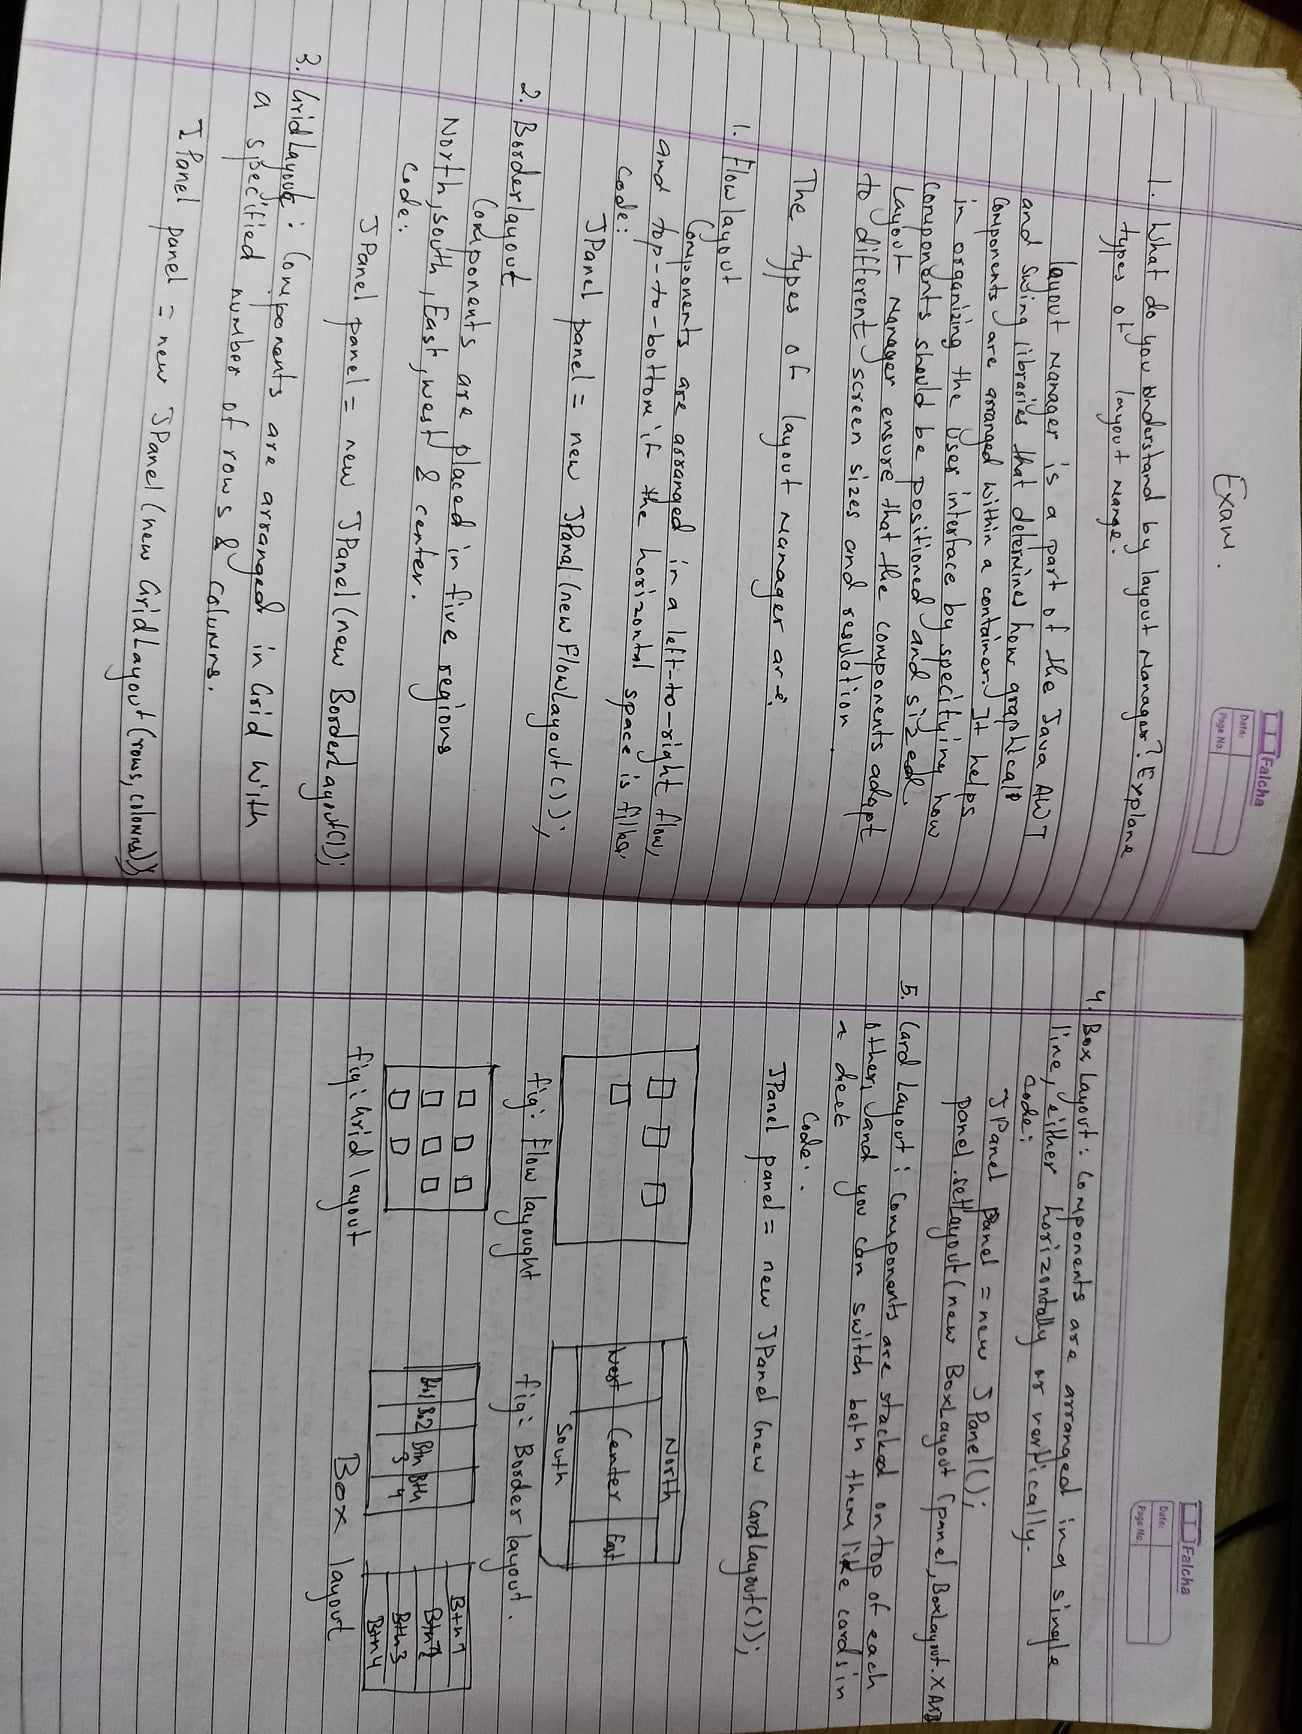 Exam.
Falcha
Date:
Page No:
1. What do you understand by layout Manager? Explane
types of layout mange.
layout Manager is a part of the Java AWT
and swing libraries that determines how graphical
components are arranged within a container. It helps
in organizing the user interface by specifying how
components should be positioned and sized.
Layout Manager ensure that the components adapt
to different screen sizes and resulation.
The types of layout manager are:
1. Flowlayout
Components are arranged in a left-to-right flow,
and top-to-bottom if the horizontal space is filled
Code:
JPanel panel = new JPanel(new FlowLayout());
2. Borderlayout
Components are placed in five regions
North, south, East, west & center.
Code:
JPanel panel = new JPanel(new BorderLayout());
3. GridLayout: Components are arranged in Grid With
a specified number of rows & columns.
JPanel panel = new JPanel(new GridLayout(rows, columns));
Falcha
Date:
Page No:
4. Box Layout: Components are arranged ina single
line, either horizontally or vertically.
Code:
JPanel panel = new JPanel();
panel.setLayout(new BoxLayout(panel, BoxLayout.X
5. Card Layout: Components are stacked on top of each
other, and you can switch betn them like cards in
a deck
Code:-
JPanel panel = new JPanel(new CardLayout());
North
West Center East
South
fig: Flow layought fig: Border layout.
Btn1 Bn2 Btn 3 Btn 4
Btn1
Btn2
Btn3
Btn4
fig: Grid layout Box layout